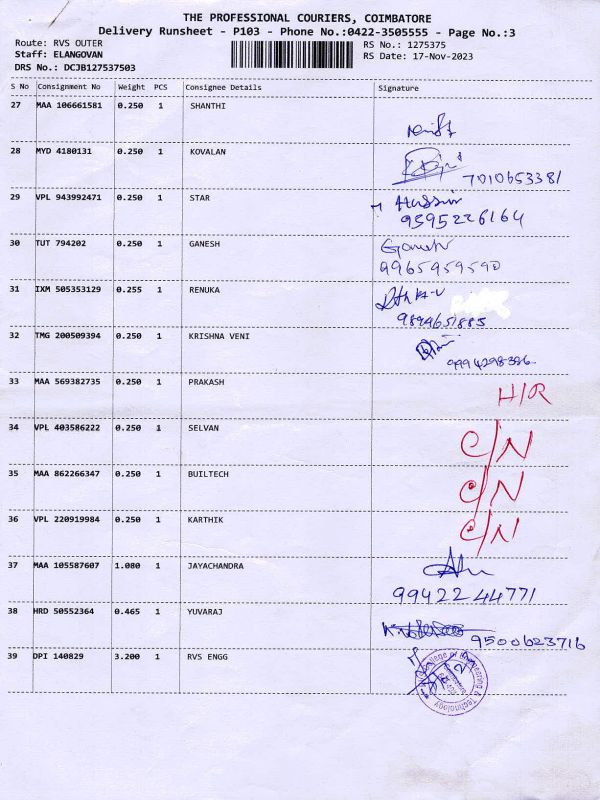 THE PROFESSIONAL COURIERS, COIMBATORE
Delivery Runsheet - P103 - Phone No.:0422-3505555 - Page No.:3
Route: RVS OUTER
RS No.: 1275375
Staff: ELANGOVAN
RS Date: 17-Nov-2023
DRS No.: DCJB127537503
S No Consignment No Weight PCS Consignee Details Signature
27 MAA 106661581 0.250 1 SHANTHI
28 MYD 4180131 0.250 1 KOVALAN
7010653381
29 VPL 943992471 0.250 1 STAR
Hussain
9595226164
30 TUT 794202 0.250 1 GANESH
Ganesh
9965959590
31 IXM 505353129 0.255 1 RENUKA
9894651885
32 TMG 200509394 0.250 1 KRISHNA VENI
9994298386
33 MAA 569382735 0.250 1 PRAKASH
H/R
34 VPL 403586222 0.250 1 SELVAN
C/N
35 MAA 862266347 0.250 1 BUILTECH
C/N
36 VPL 220919984 0.250 1 KARTHIK
C/N
37 MAA 105587607 1.080 1 JAYACHANDRA
99422 44771
38 HRD 50552364 0.465 1 YUVARAJ
9500623716
39 DPI 140829 3.200 1 RVS ENGG
College of Engineering & Technology